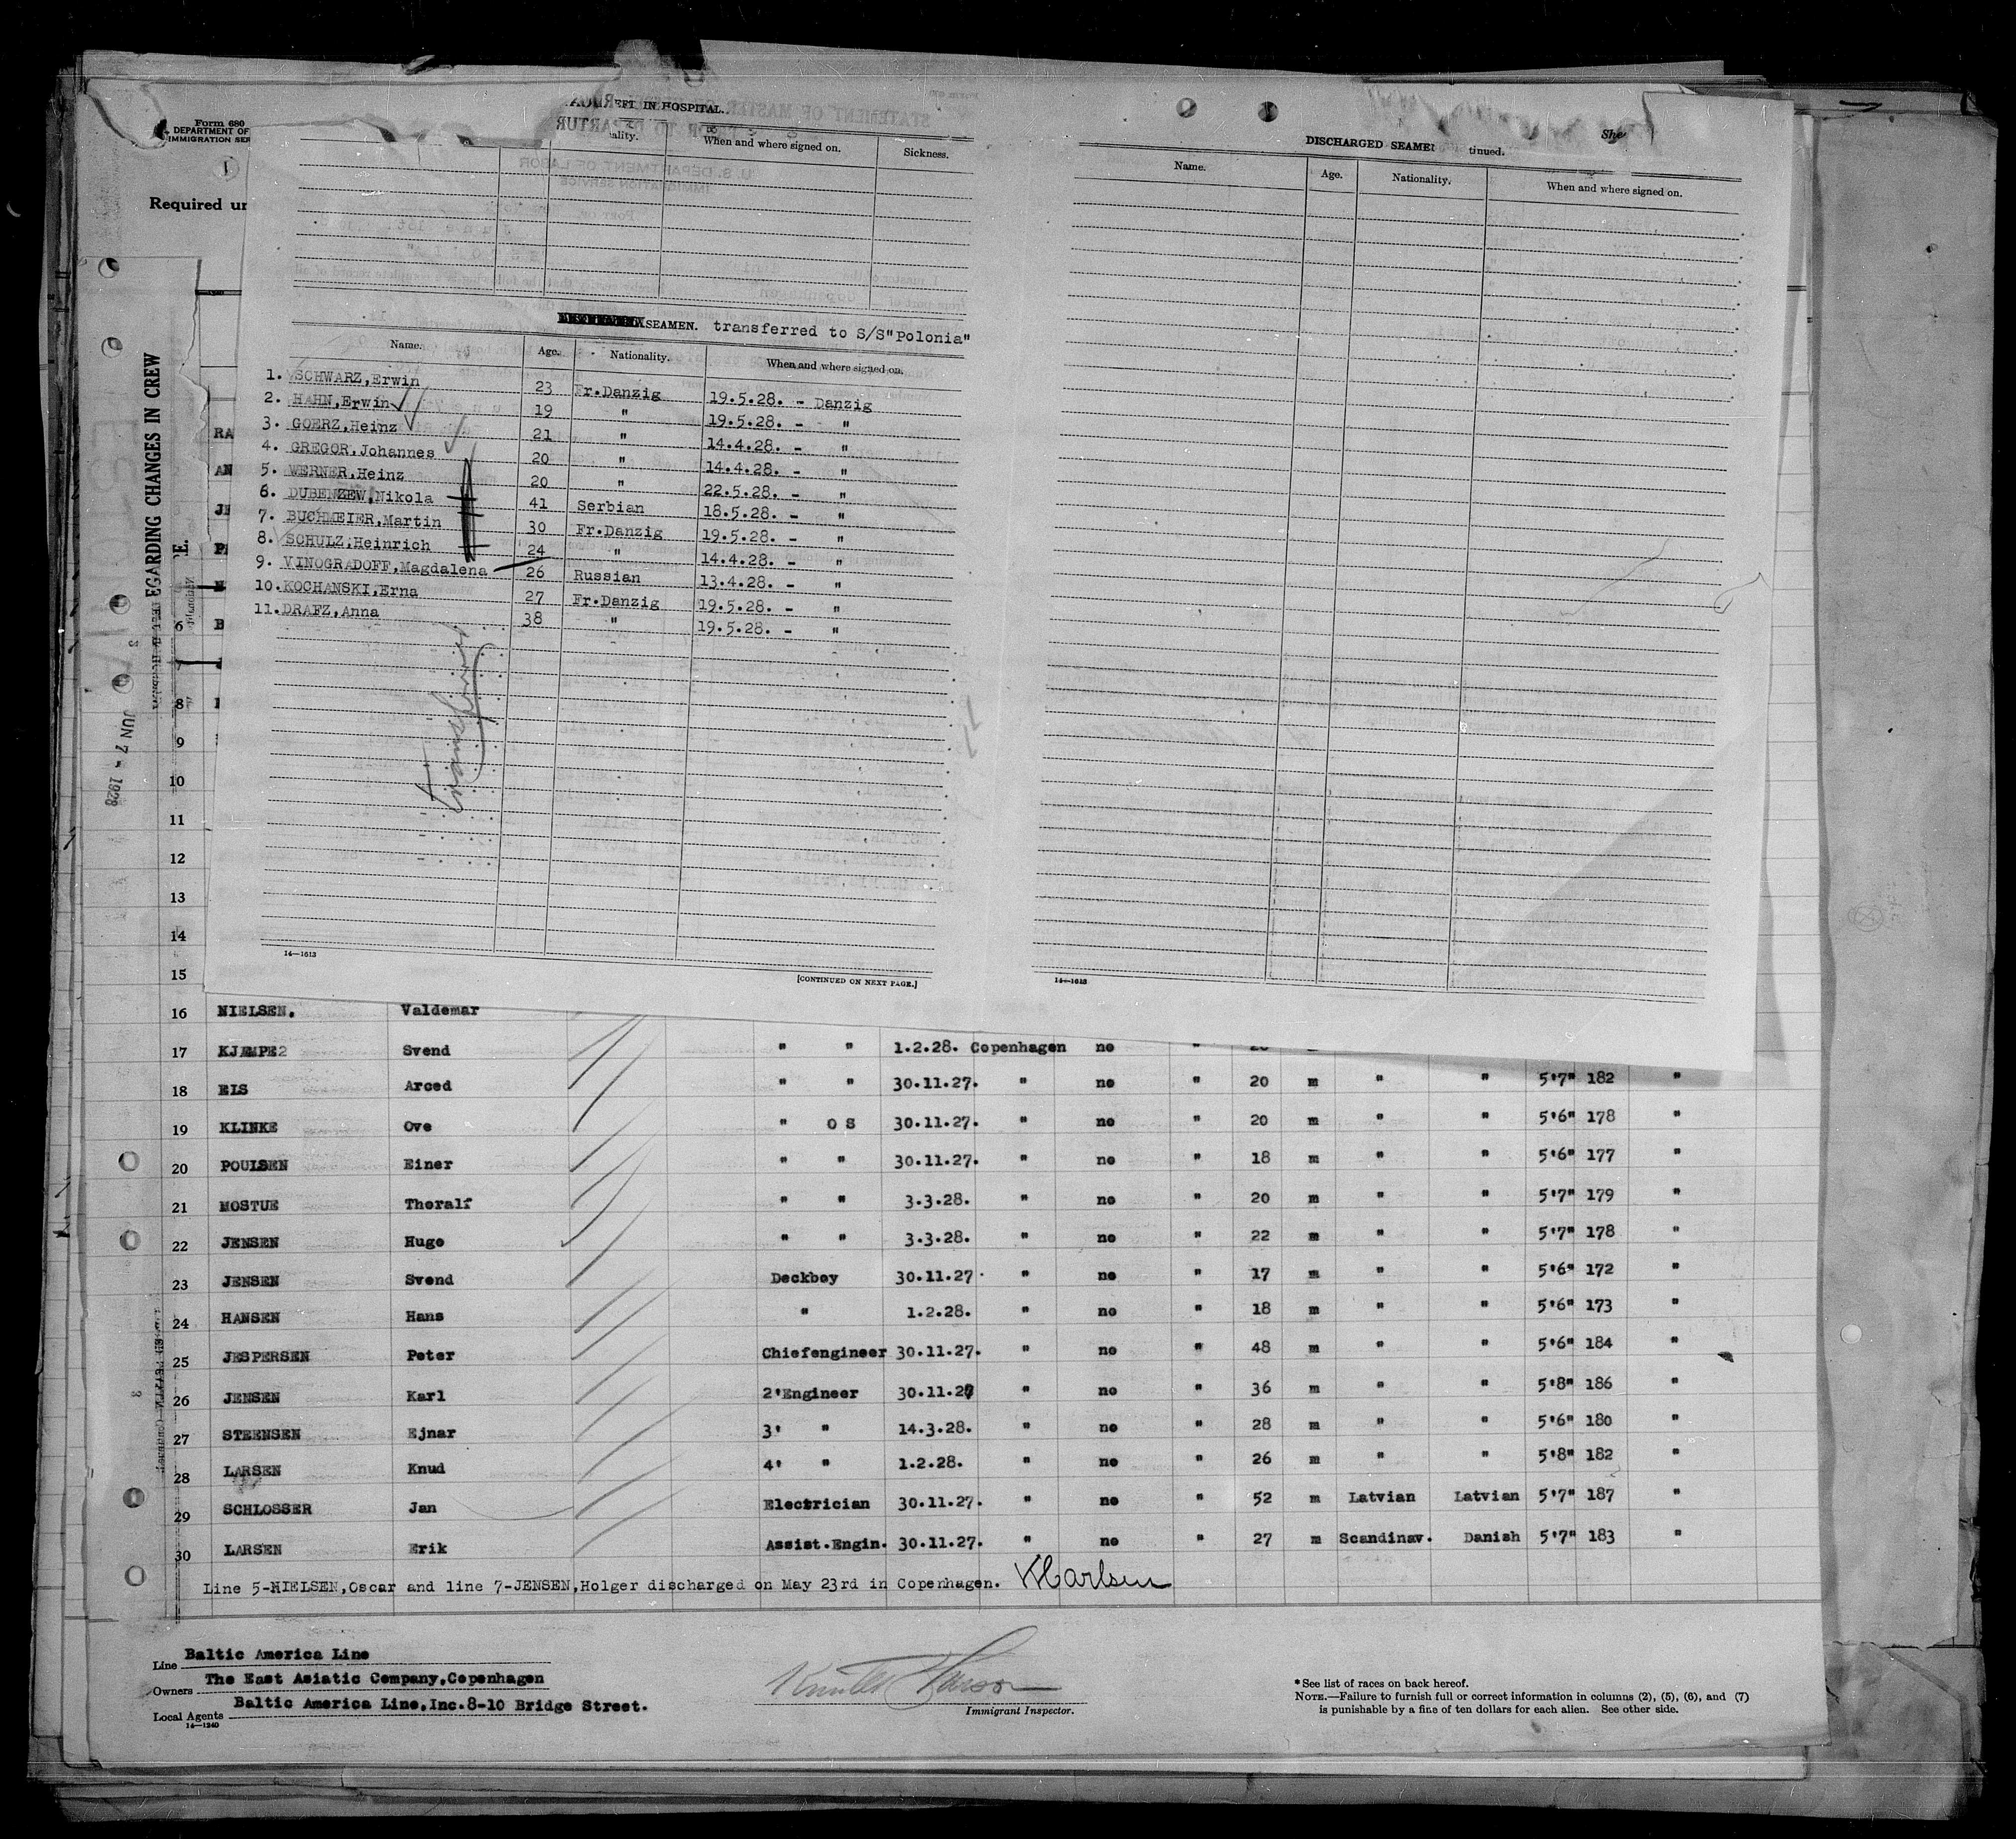 Form 680
DEPARTMENT OF
IMMIGRATION SER
Required un
EGARDING CHANGES IN CREW
JUN 7 - 1928
EFT IN HOSPITAL.
ality. When and where signed on. Sickness.
SEAMEN. transferred to S/S"Polonia"
Name. Age. Nationality. When and where signed on.
1. SCHWARZ,Erwin 23 Fr.Danzig 19.5.28. - Danzig
2. HAHN,Erwin 19 " 19.5.28. - "
3. GOERZ,Heinz 21 " 14.4.28. - "
4. GREGOR,Johannes 20 " 14.4.28. - "
5. WERNER,Heinz 20 " 22.5.28. - "
6. DUBENZEW,Nikola 41 Serbian 18.5.28. - "
7. BUCHMEIER,Martin 30 Fr.Danzig 19.5.28. - "
8. SCHULZ,Heinrich 24 " 14.4.28. - "
9. VINOGRADOFF,Magdalena 26 Russian 13.4.28. - "
10. KOCHANSKI,Erna 27 Fr.Danzig 19.5.28. - "
11. DRAFZ,Anna 38 " 19.5.28. - "
14—1613
[CONTINUED ON NEXT PAGE.]
She
DISCHARGED SEAME tinued.
Name. Age. Nationality. When and where signed on.
14—1613
RA
AN
6 B
7
8
9
10
11
12
13
14
15
16 NIELSEN. Valdemar
17 KJEMPE2 Svend " " 1.2.28. Copenhagen no "
18 ELS Arced " " 30.11.27. " no " 20 m " " 5'7" 182 "
19 KLINKE Ove " O S 30.11.27. " no " 20 m " " 5'6" 178 "
20 POULSEN Einer " " 30.11.27. " no " 18 m " " 5'6" 177 "
21 MOSTUE Thoralf " " 3.3.28. " no " 20 m " " 5'7" 179 "
22 JENSEN Hugo " " 3.3.28. " no " 22 m " " 5'7" 178 "
23 JENSEN Svend Deckboy 30.11.27. " no " 17 m " " 5'6" 172 "
24 HANSEN Hans " 1.2.28. " no " 18 m " " 5'6" 173 "
25 JESPERSEN Peter Chiefengineer 30.11.27. " no " 48 m " " 5'6" 184 "
26 JENSEN Karl 2'Engineer 30.11.27 " no " 36 m " " 5'8" 186 "
27 STEENSEN Ejnar 3' " 14.3.28. " no " 28 m " " 5'6" 180 "
28 LARSEN Knud 4' " 1.2.28. " no " 26 m " " 5'8" 182 "
29 SCHLOSSER Jan Electrician 30.11.27. " no " 52 m Latvian Latvian 5'7" 187 "
30 LARSEN Erik Assist.Engin. 30.11.27. " no " 27 m Scandinav. Danish 5'7" 183 "
Line 5-NIELSEN,Oscar and line 7-JENSEN,Holger discharged on May 23rd in Copenhagen.
Line Baltic America Line
Owners The East Asiatic Company,Copenhagen
Local Agents Baltic America Line,Inc.8-10 Bridge Street.
14—1240
Immigrant Inspector.
*See list of races on back hereof.
NOTE.—Failure to furnish full or correct information in columns (2), (5), (6), and (7)
is punishable by a fine of ten dollars for each alien. See other side.